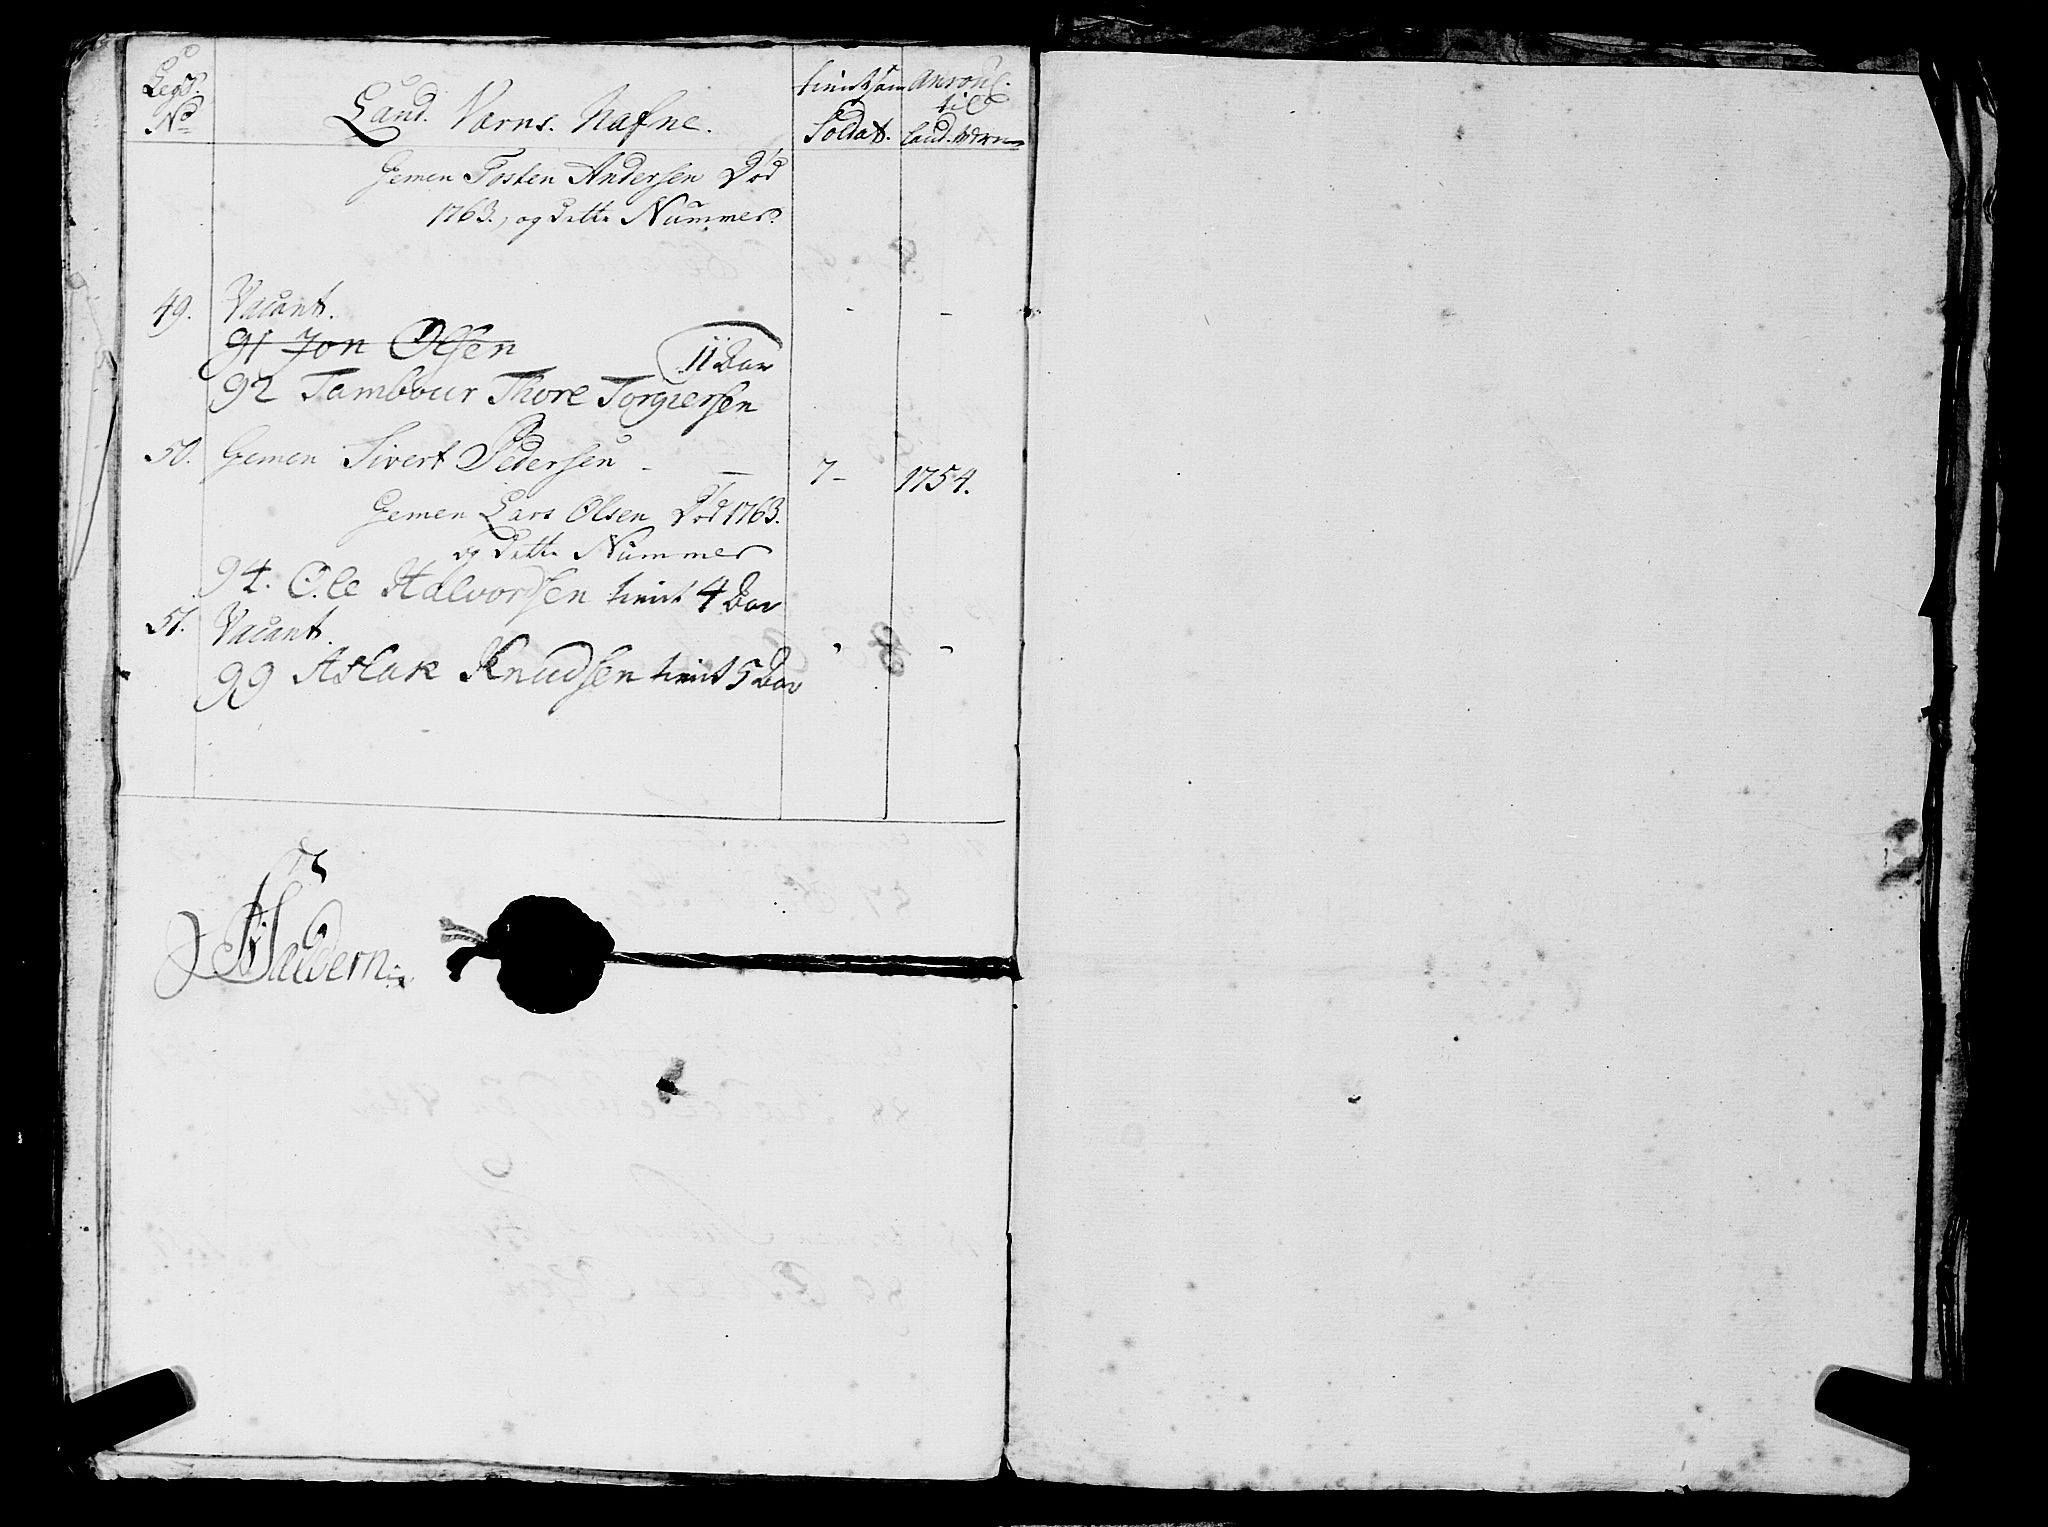 Legs. No
Land. Værns. Nafne.
tient som Soldat.
Anroul. til Land. Wern
Gemen Tosten Andersen Död
1763., og dette Nummer.
49. Vacant. - -
91 Jon Olsen
11 Aar
92 Tambour Thore Torgiersen
50. Gemen Sivert Pedersen - - 7 - 1754.
Gemen Lars Olsen Död 1763.
og dette Nummer
94. Ole Halvordsen tient 4 Aar
51. Vacant.
99 Aslak Knudsen tient 5 Aar